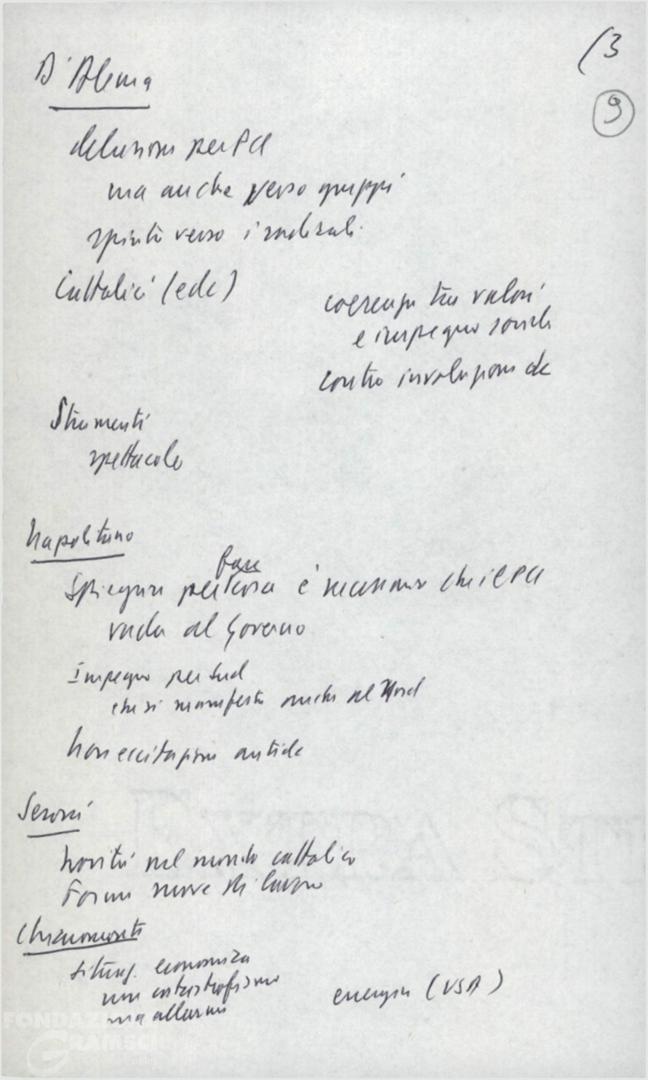 (3
9
D'Alema
delusioni per PCI
ma anche verso gruppi
spinta verso i radicali
Cattolici (e dc)
coerenza tra valori
e impegno sociale
contro involuzione dc
Strumenti
spettacolo
Napolitano
fare
Spiegare per cosa è necessario che il PCI
vada al Governo
Impegno per Sud
che si manifesta anche al Nord
Non eccitazione antidc
Seroni
Novità nel mondo cattolico
Forme nuove di lavoro
Chiaromonte
Situaz. economica
non catastrofismo
ma allarme
energia (USA)
FONDAZI
GRAMSCI